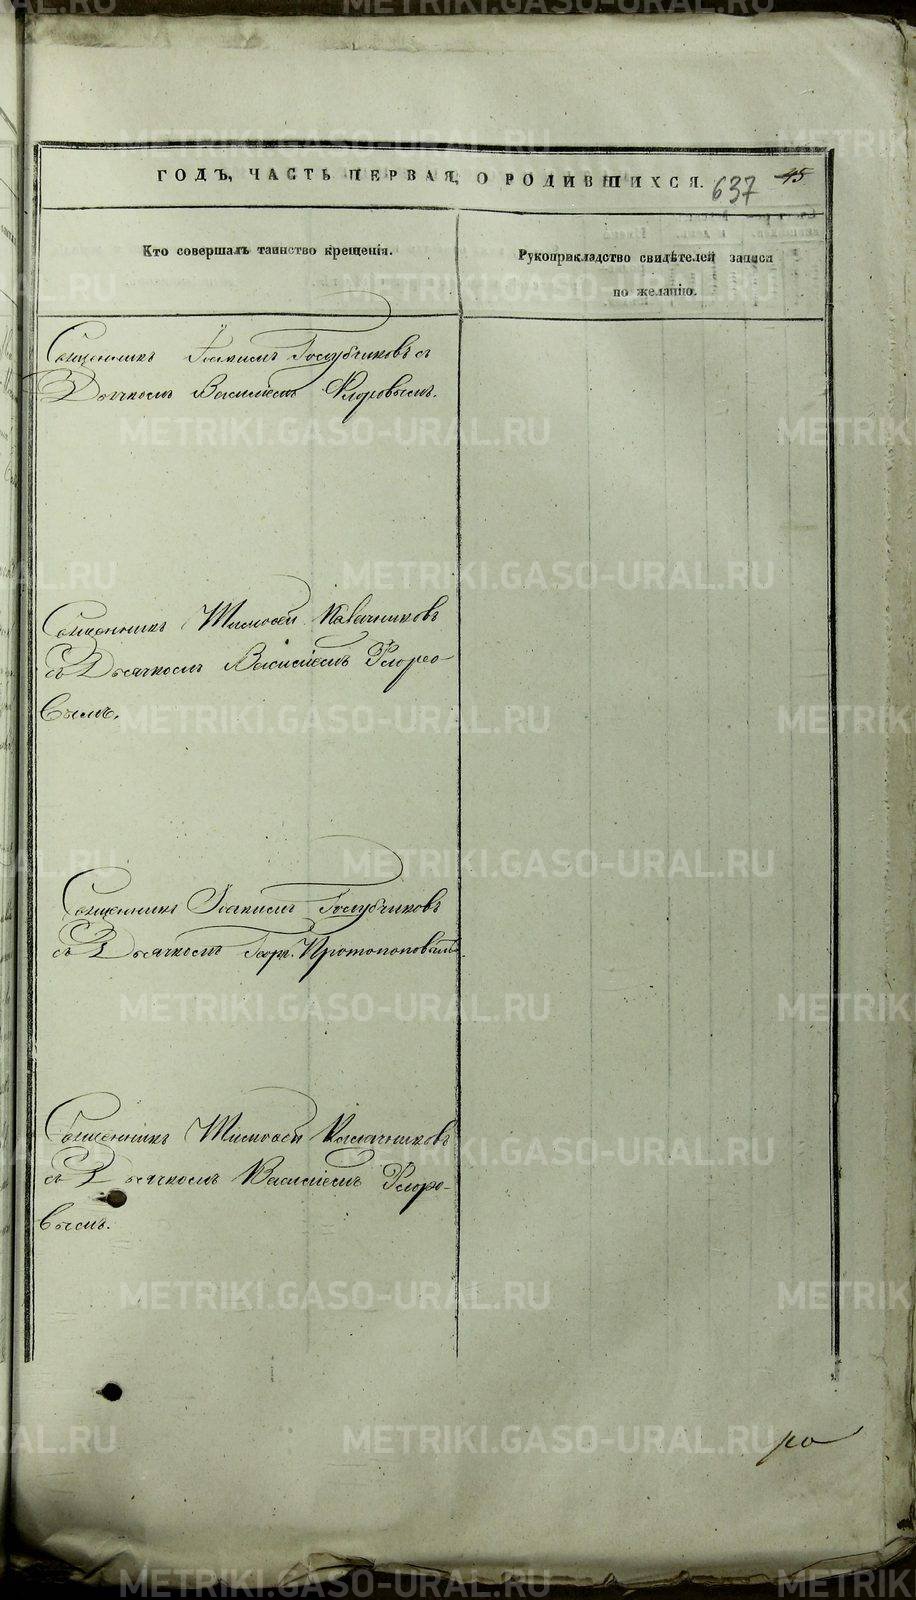 ГОДЪ, ЧАСТЬ ПЕРВАЯ, О РОДИВШИХСЯ. 637 45
Кто совершалъ таинство крещенія.
Рукоприкладство свидѣтелей записи
по желанію.
Священникъ Іоакимъ Голубчиковъ съ
Дьячкомъ Василіемъ Флоровымъ.
Священникъ Тимофей Калачниковъ
съ Дьячкомъ Василіемъ Флоро-
вымъ.
Священникъ Іоакимъ Голубчиковъ
съ Дьячкомъ Геор. Протопоповымъ.
Священникъ Тимофей Калачниковъ
съ Дьячкомъ Василіемъ Флоро-
вымъ.
METRIKI.GASO-URAL.RU